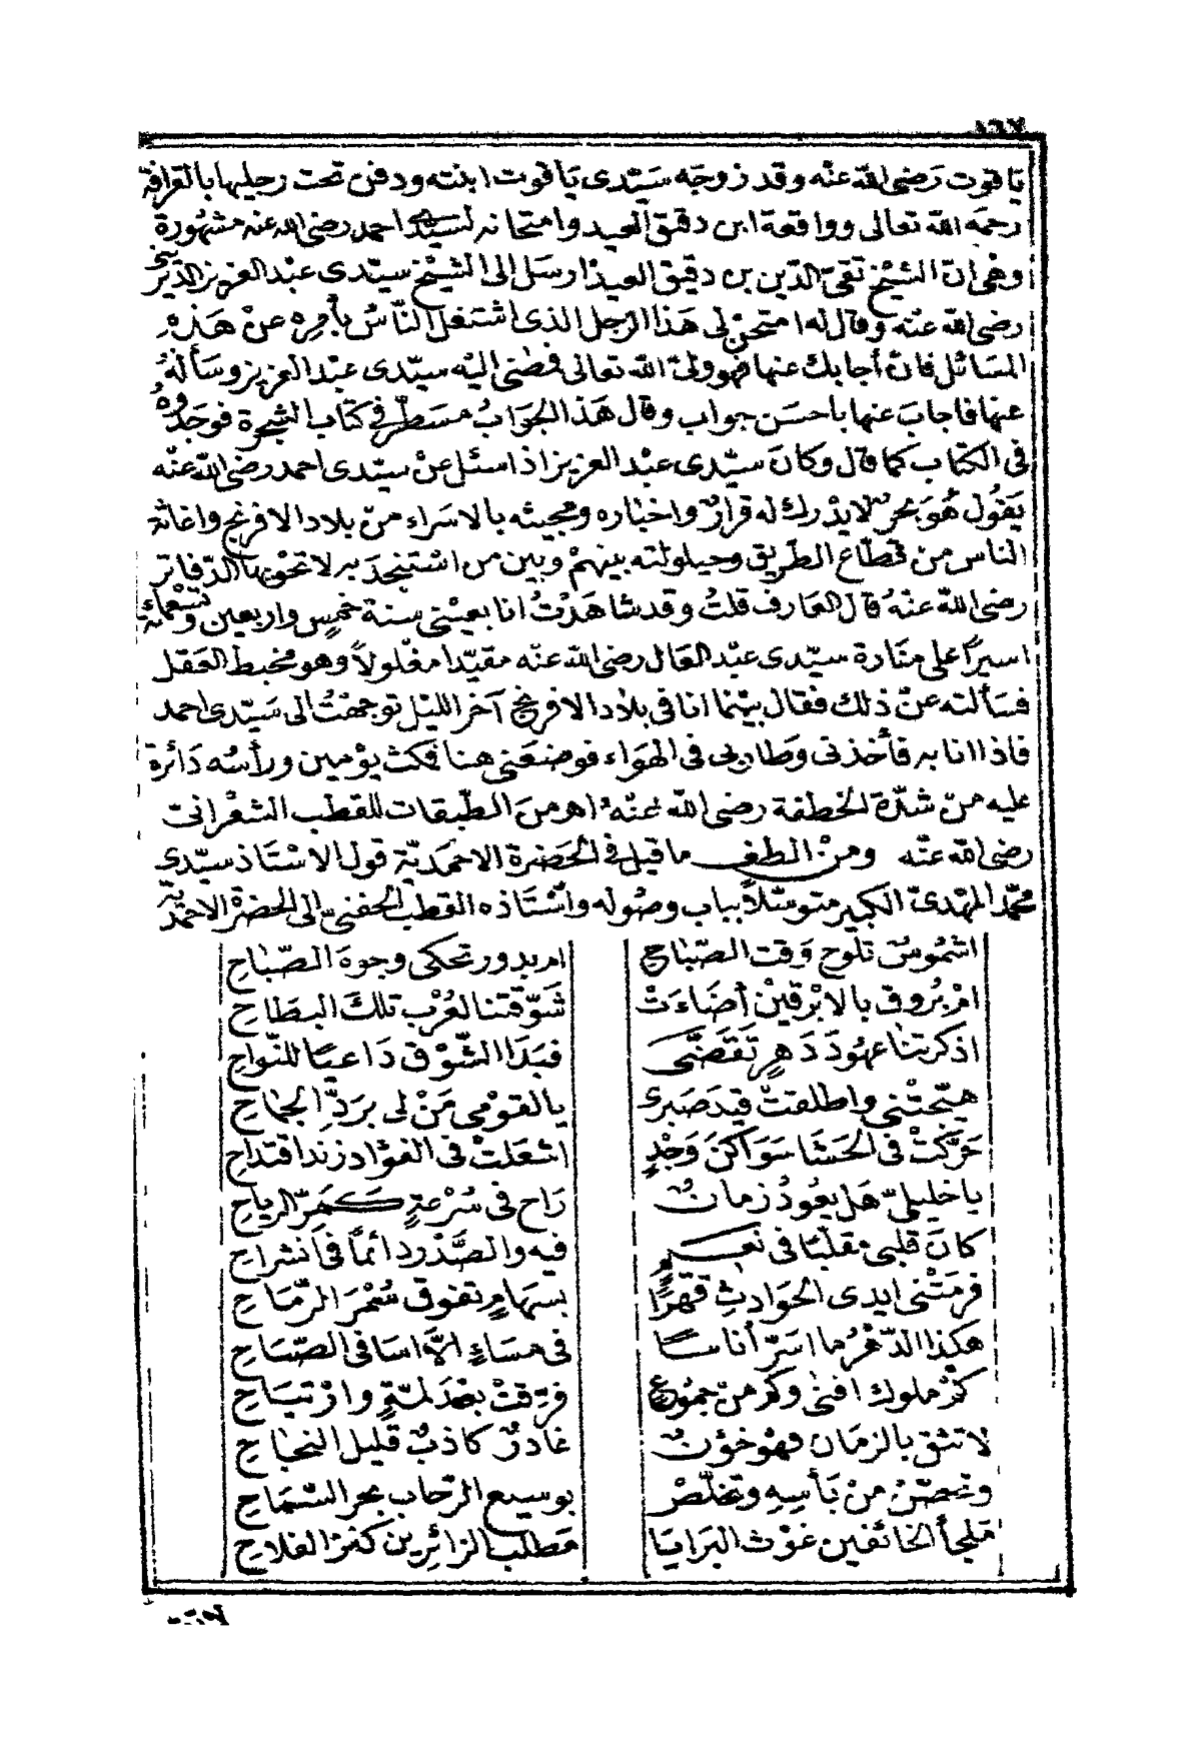 ياقوت رَضى الله عنْه وقد زوجَه سَيّدى يَاقوت ابنته ودفن تحت رجليها بالقرافة
رحمَه الله تعالى وواقعة ابن دقيق العيد وامتحانه لسيّدى احمد رضى الله عنه مشهورة
وهى انّ الشيْخ تقىّ الدّين بن دقيق العيد ارسَل إلى الشيْخ سيّدى عبْد العزيز الدّيْرينى
رضى الله عنْه وقال له امتحنْ لى هَذا الرّجل الذى اشتغل النّاسُ بأمرِه عنْ هَذهِ
المسَائل فانْ أجابك عنها فهو ولىّ الله تعالى فمضى اليْه سيّدى عبْد العزيز وسَألهُ
عنها فاجابَ عنها باحسَن جواب وقال هَذا الجَوابُ مسَطّر فى كتاب الشجرة فوجَدُوهُ
فى الكتاب كما قال وكانَ سيّدى عبْد العزيز اذا سئل عنْ سيّدى احمد رضى الله عنْه
يَقُول هُوَ بحْرٌ لا يدْرك له قرارٌ واخباره ومجيئه بالاسَراء منْ بلاد الافرنج واغاثة
الناس من قطّاع الطّريق وحيلولته بينهمْ وبين من اسْتنجدَ به لا تحْويها الدّفاتر
رضى الله عنْهُ قال العَارف قلتُ وقد شاهَدْتُ انا بعيْنى سنة خمْسٍ واربعين وتسْعمائة
اسيرًا على منَارة سيّدى عبْد العَال رضى الله عنْه مقيّدا مغْلولاً وهو مخبط العَقل
فسَألته عنْ ذلك فقال بيْنما انا فى بلاد الافرنج آخر الليْل توجهْتُ الى سَيّدى احمد
فاذا انا به فأخذنى وَطار بى فى الهوَاء فوضعَنى هنا فمكث يوْمين ورأسُه دَائرة
عليه منْ شدّة الخطفة رضى الله عنْهُ اهـ منَ الطّبقات للقطب الشعْرانىّ
رضى الله عنْه ومنْ الطف ما قيل فى الحَضرة الاحمَديّة قول الاسْتاذ سيّدى
محمّد المهْدىّ الكبير متوسّلاً بباب وصُوله وأسْتَاذه القطب الحفنىّ الى الحضرْة الاحمَديّة
اشمُوسٌ تلوح وَقت الصّبَاحِ ام بدور تحكى وجوهَ الصّبَاحِ
امْ بُروق بالابْرقيْن أضَاءَتْ شَوّقتنا لعُرْب تلكَ البطَاحِ
اذكرتنا عهُودَ دَهرٍ تَقَضَّى فبَدَا الشّوْق دَاعيًا للنّواحِ
هيّجتْنى واطلقتْ قيدَ صَبرى يالقوْمى مَنْ لى بردِّ الجمَاحِ
حَرَّكتْ فى الحَشَا سَوَاكنَ وَجْدٍ اشعَلتْ فى الفؤاد زند اقتداحِ
يا خليلىّ هَل يعُودُ زمانٌ رَاح فى سُرْعةٍ كمَرّ الرياحِ
كانَ قلبى مقلّبًا فى نعيمٍ فيه والصَّدْر دائماً فى انشراحِ
فرمَتْنى ايدى الحوَادثِ قهْرًا بسهَامٍ تفوق سُمْرَ الرّمَاحِ
هكذا الدّهْرُ ما اسَرّ أناسًا فى مسَاءٍ الاّ اسَا فى الصّبَاحِ
كمْ ملوك افنى وكم منْ جمُوعٍ فرّقتْ بعْدَ لمّةٍ وارْتيَاحِ
لا تثق بالزمَان فهْوَ خؤنٌ غادرٌ كاذبٌ قليل النجَاحِ
وتحصّنْ منْ بَأسِهِ وتخلّصْ بوسيع الرّحاب بحر السّمَاحِ
مَلجأ الخائفين غوْث البَرايَا مَطلب الزائرين كنز الفلاحِ